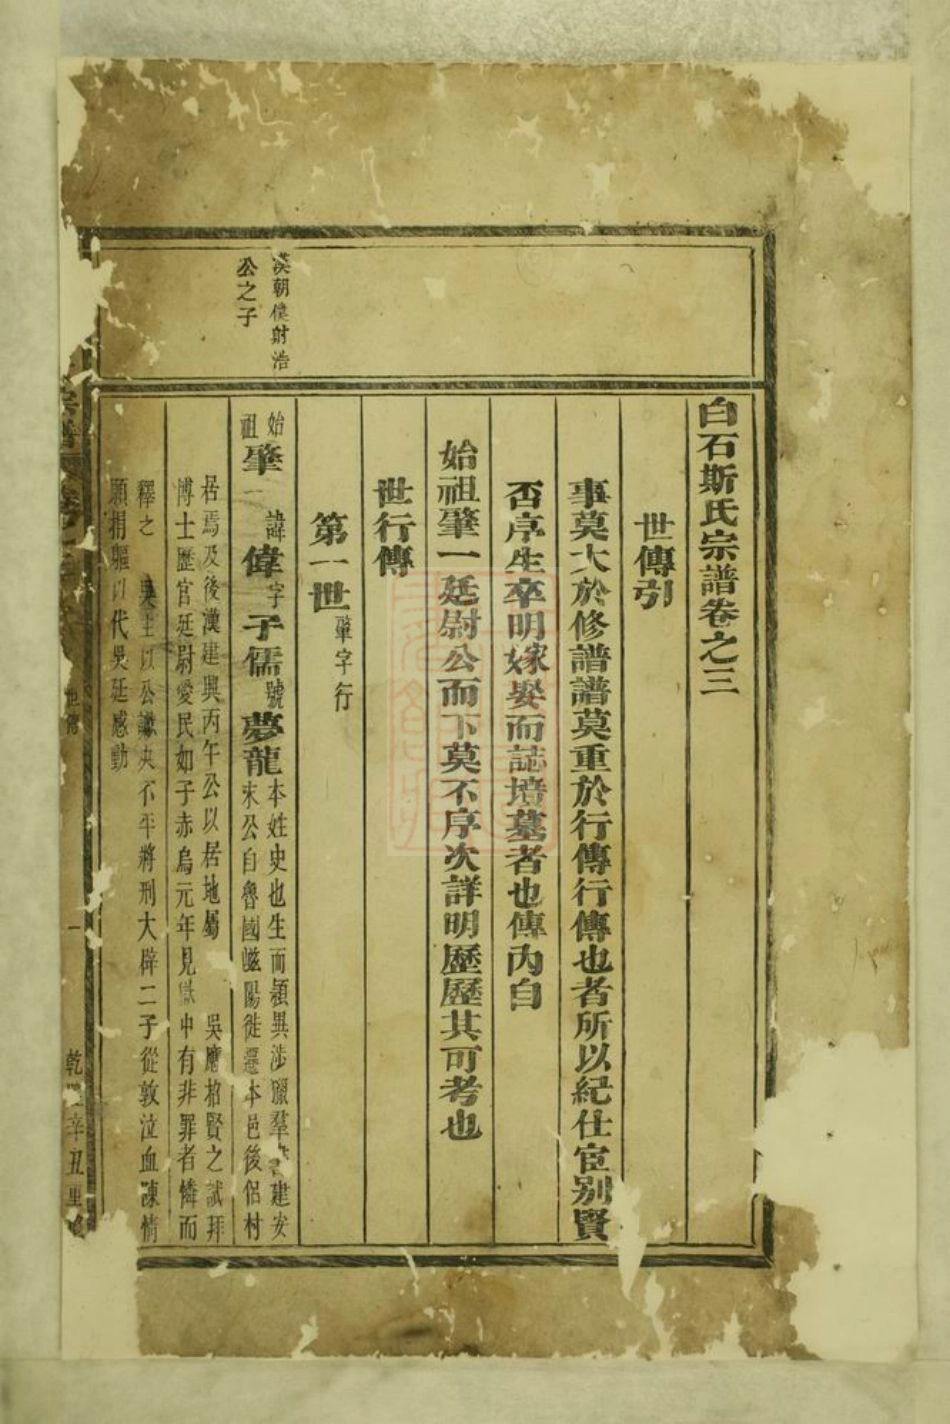 白石斯氏宗譜卷之三
世傳引
事莫大於修譜譜莫重於行傳行傳也者所以紀仕宦別賢
否序生卒明嫁娶而誌墳墓者也傳內自
始祖肇一廷尉公而下莫不序次詳明歷歷其可考也
世行傳
第一世肇字行
漢朝僕射浩
公之子
始祖肇一 諱偉字子儒號夢龍
本姓史也生而穎異涉獵羣 建安
末公自魯國嵫陽徙遷本邑後侶村
居焉及後漢建興丙午公以居地屬 吳應招賢之試拜
博士歷官廷尉愛民如子赤烏元年見獄中有非罪者憐而
釋之 吳主以公讞決不平將刑大辟二子從敦泣血陳情
願捐軀以代吳廷感動
宗譜 卷之三
世傳
一
乾 辛丑重